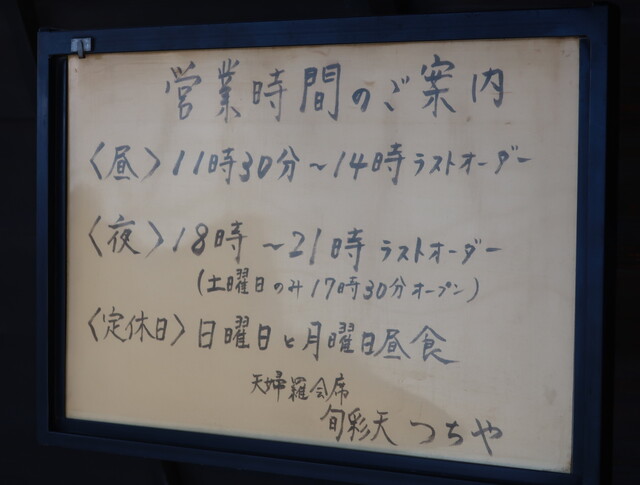 営業時間のご案内
〈昼〉11時30分~14時ラストオーダー
〈夜〉18時~21時ラストオーダー
(土曜日のみ17時30分オープン)
〈定休日〉日曜日と月曜日昼食
天婦羅会席
旬彩天 つちや